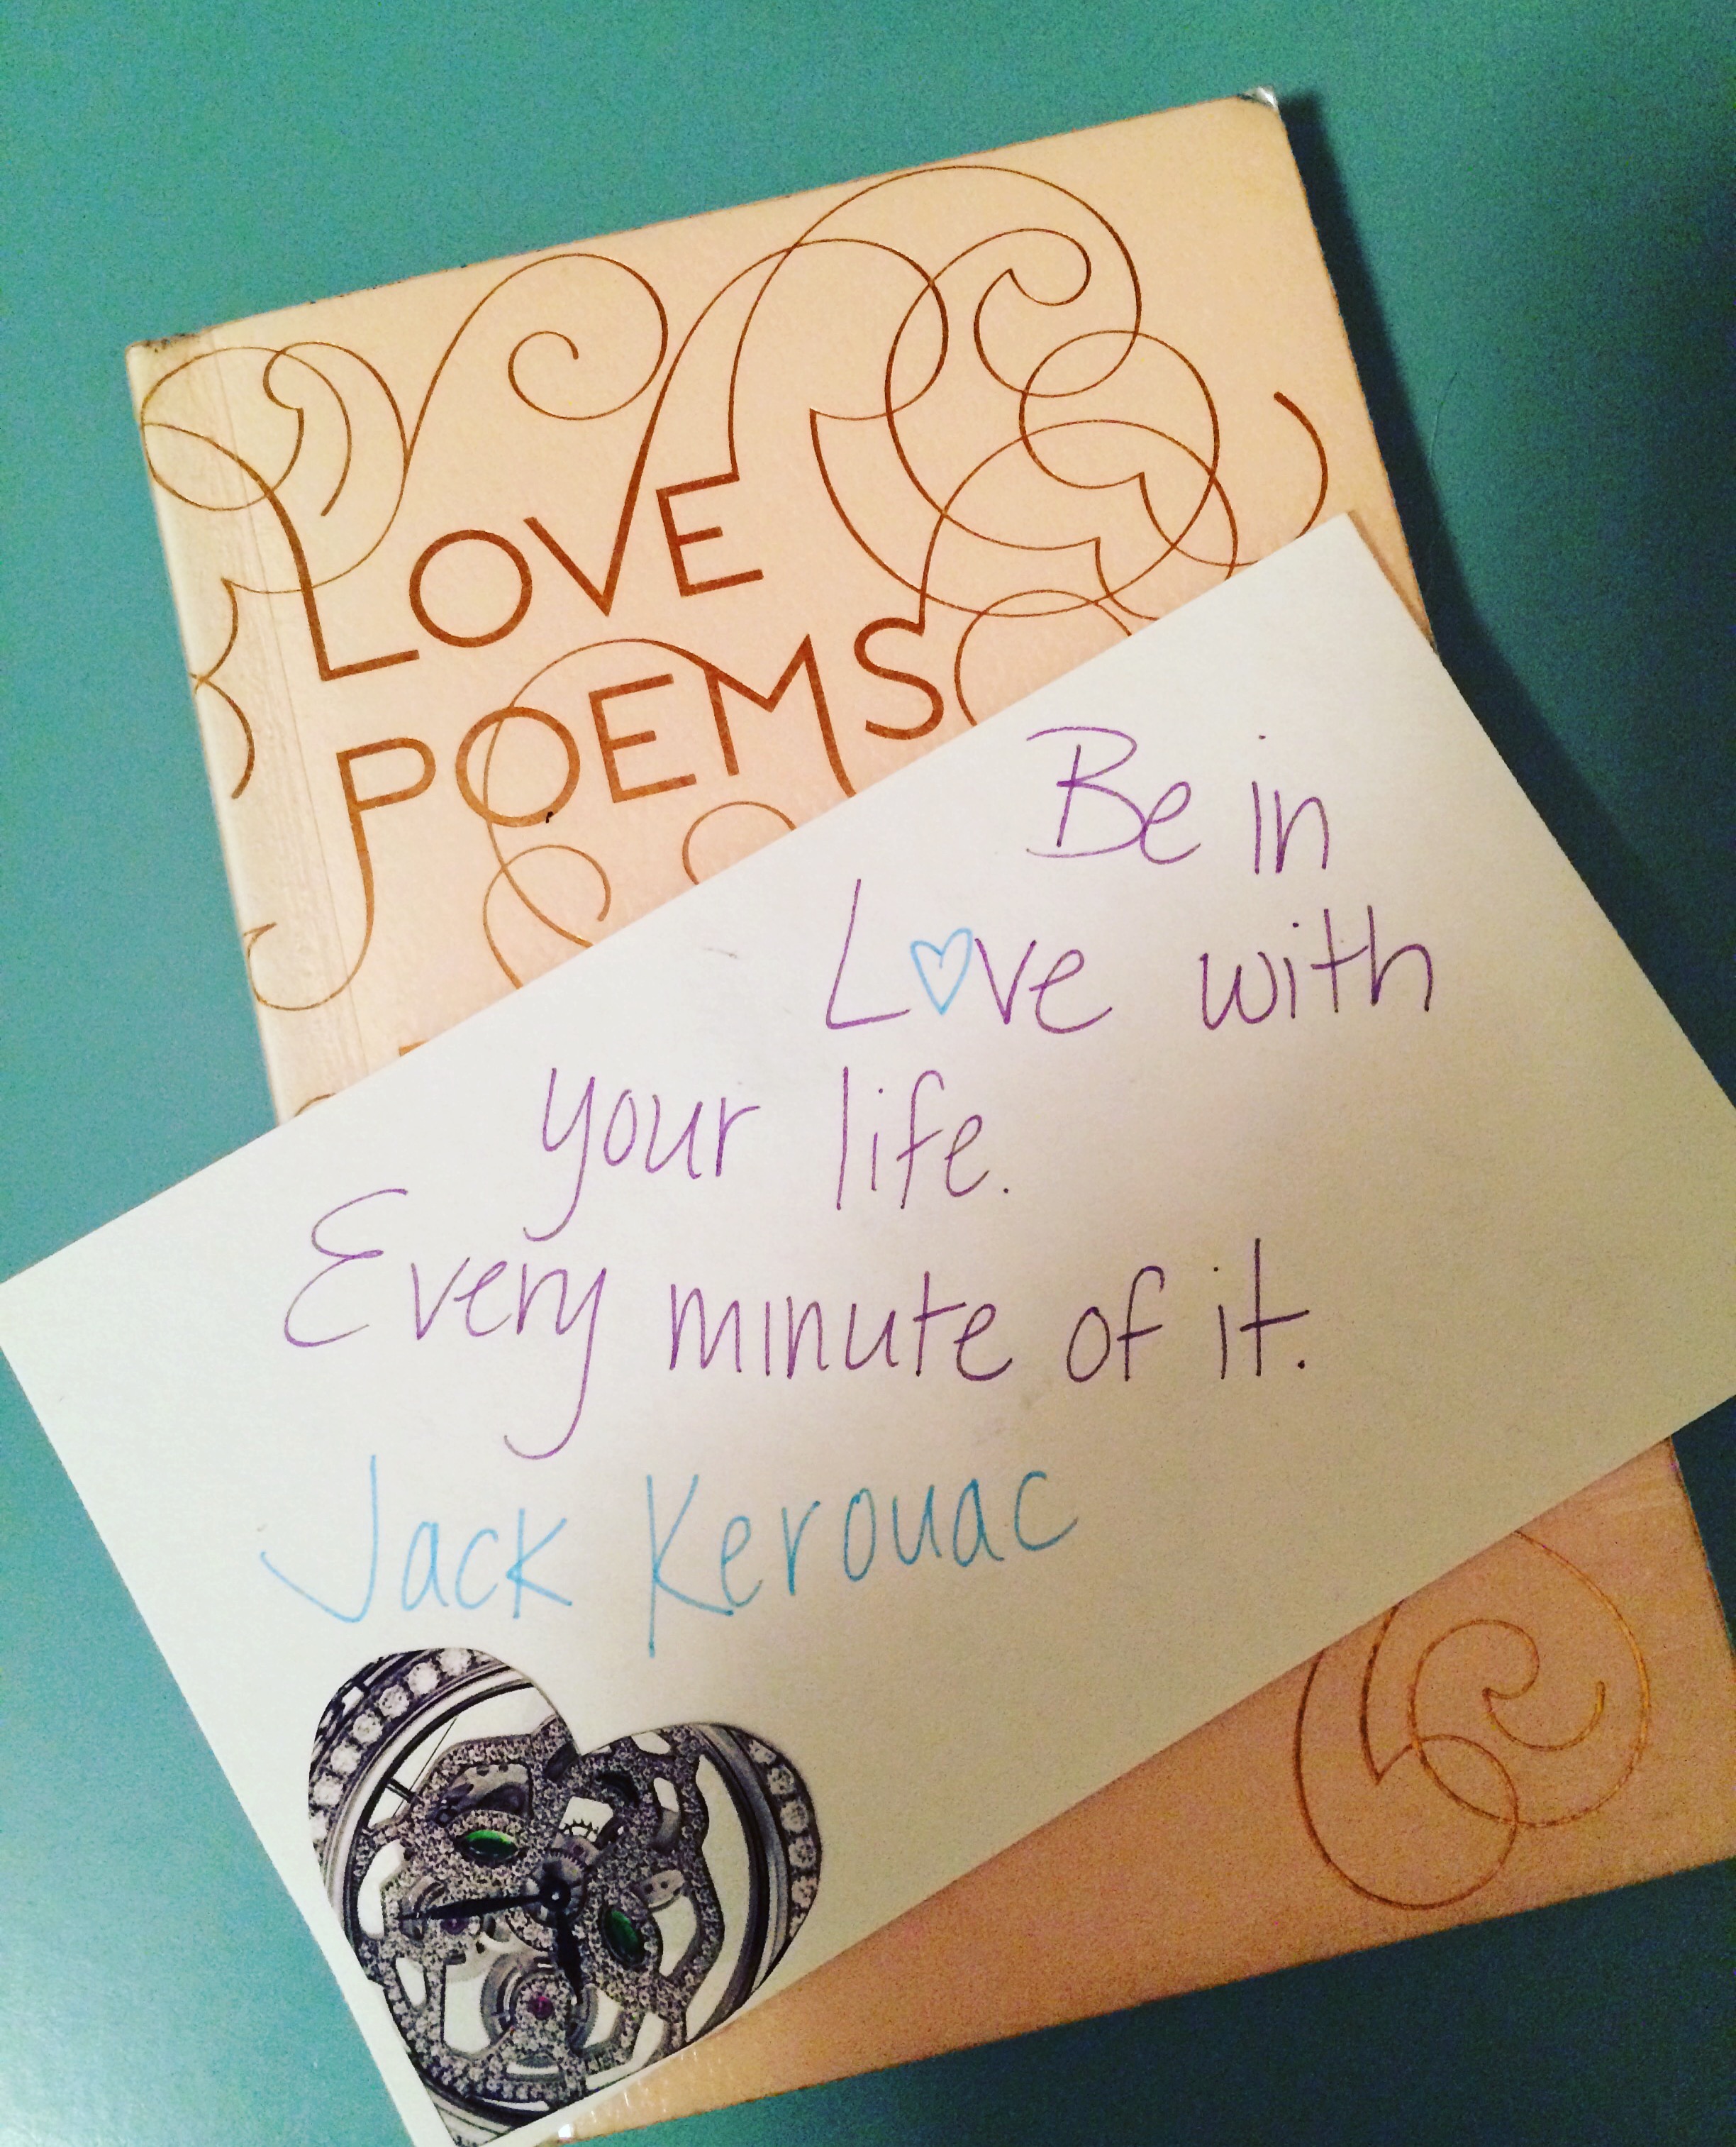 LOVE
POEMS
Be in
Love with
your life.
Every minute of it.
Jack Kerouac